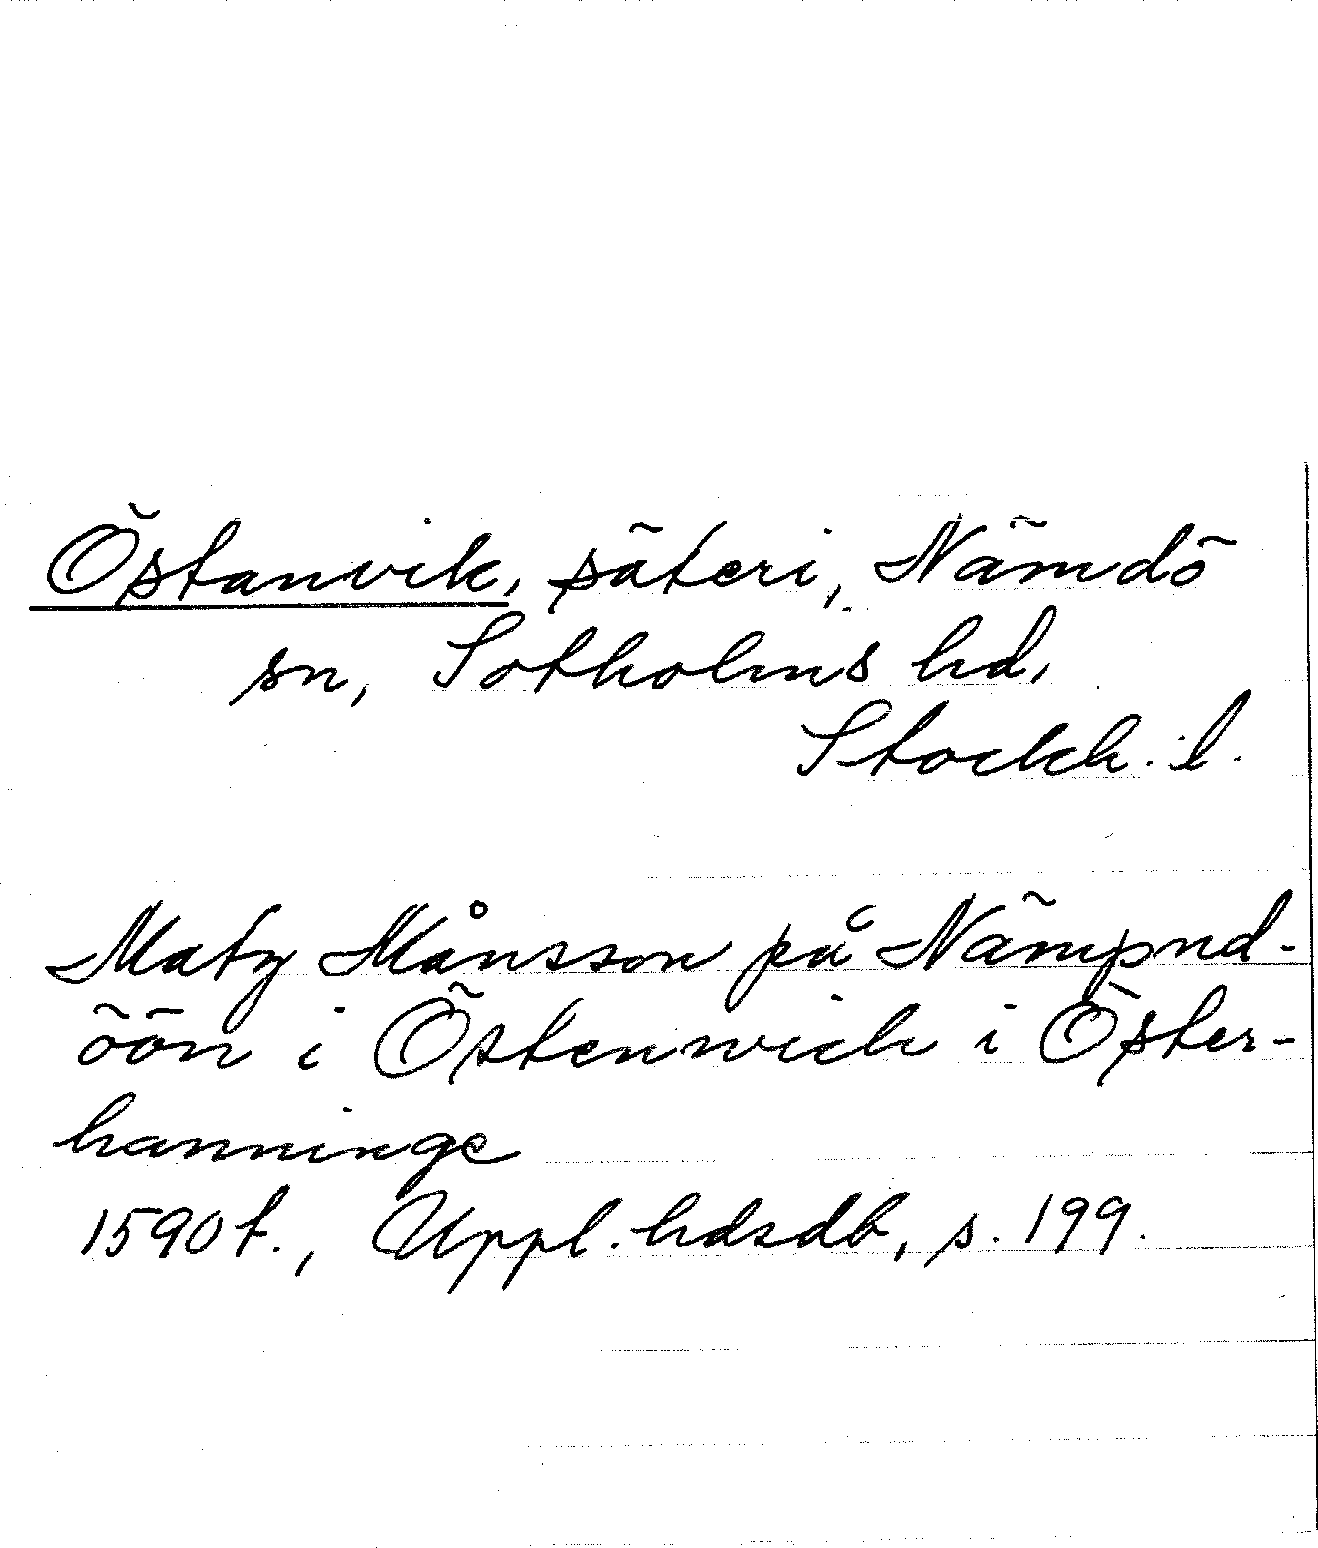 Östanvik, säteri, Nämdö
sn, Sotholms hd,
Stockh. l.
Matz Månsson på Nämpnd-
öön i Östenwich i Öster-
hanninge
1590 t., Uppl. hdsdb, s. 199.